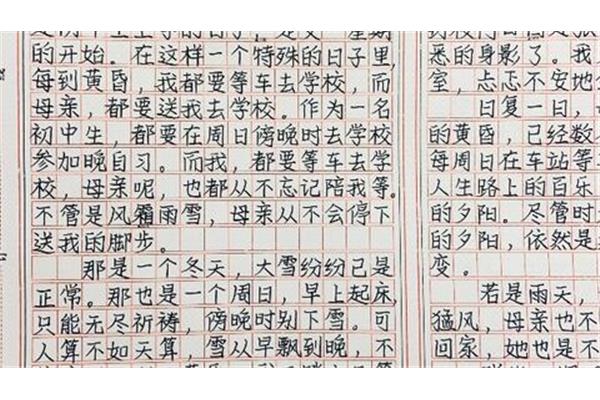 的开始。在这样一个特殊的日子里,
每到黄昏,我都要等车去学校,而
母亲,都要送我去学校。作为一名
初中生,都要在周日傍晚时去学校
参加晚自习。而我,都要等车去学
校,母亲呢,也都从不忘记陪我等。
不管是风霜雨雪,母亲从不会停下
送我的脚步。
那是一个冬天,大雪纷纷已是
正常。那也是一个周日,早上起床,
只能无尽祈祷,傍晚时别下雪。可
人算不如天算,雪从早飘到晚,不
悉的身影了。我
室,忐忑不安地
日复一日,
的黄昏,已经数
每周日在车站等
人生路上的百乐
的夕阳。尽管时
的夕阳,依然是
变。
若是雨天,
猛风,母亲也不
回家,她也是不